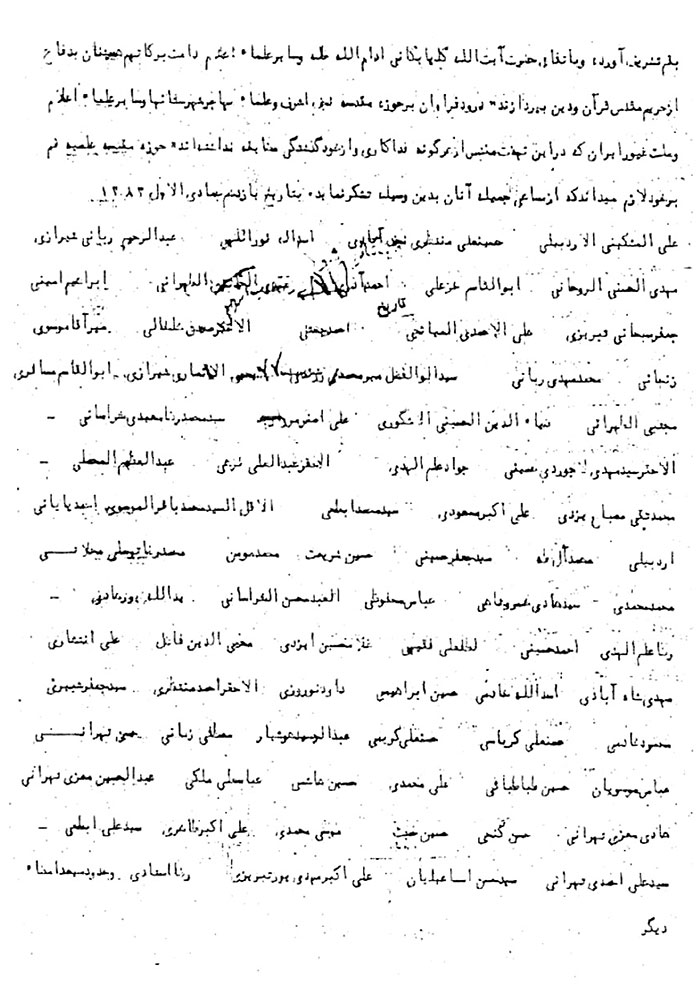 بقم تشریف آورده وباتفاق حضرت آیت الله گلپایگانی ادام الله ظله وسایر علماء اعلام دامت برکاتهم همچنان بدفاع
ازحریم مقدس قرآن ودین بپردازند" درودفراوان برحوزه مقدسه نجف اشرف وعلماء مهاجر شهرستانها وسایر علماء اعلام
وملت غیور ایران که دراین نهضت مقدس از هرگونه فداکاری وازخودگذشتگی مضایقه نداشته اند" حوزه مقدسه علمیه قم
برخودلازم میداند که ازمساعی جمیله آنان بدین وسیله تشکر نماید" بتاریخ یازدهم جمادی الاول ۱۳۸۳
علی المشکینی الاردبیلی حسینعلی منتظری نجف آبادی اسدالله نوراللهی عبدالرحیم ربانی شیرازی
مهدی الحسینی الروحانی ابوالقاسم خزعلی احمد آذری الطهرانی ابراهیم امینی
جعفر سبحانی تبریزی علی الاحمدی المیانجی احمد جنتی الاحقر صادق خلخالی میرآقا موسوی
زنجانی محمدمهدی ربانی سیدابوالفضل میرمحمدی انصاری شیرازی ابوالقاسم مسافری
مجتبی الطهرانی ضیاء الدین الحسینی اشکوری علی اصغر سیدمحمدرضا سعیدی خراسانی
الاحقر سیدمهدی لاجوردی حسینی جواد علم الهدی الاحقر عبدالعلی عبدالعظیم المحصلی
محمدتقی مصباح یزدی علی اکبر مسعودی سیدمحمد ابطحی الاقل السید محمد باقر الموسوی اسعدیاپانی
اردبیلی محمد آل طه سیدجعفر حسینی حسین شریعت محمد مومن محمدرضا توسلی محلاتی
محمد محمدی سیدهادی خسروشاهی عباس محفوظی العبد محسن الخراسانی یدالله پورهادی
رضا علم الهدی احمد حسینی لطفعلی فقیهی غلامحسین ایزدی محیی الدین فاضل علی افتخاری
مهدی شاه آبادی اسدالله خادمی حسین ابراهیمی داود نوروزی الاحقر احمد منتظری سیدجعفر شبیری
محمود خادمی حسنعلی کرباسی حسنعلی کریمی عبدالوحید هوشیار مصطفی زمانی حسن تهرانی
عباس موسویان حسین طباطبائی علی محمدی حسین هاشمی عباسعلی ملکی عبدالحسین معزی تهرانی
هادی معزی تهرانی حسن گنجی حسین مجتبی محمدی علی اکبر طاهری سیدعلی ابطحی
سیدعلی احمدی تهرانی سیدحسن اسماعیلیان علی اکبر مهدی پور تبریزی رضا استادی وحدود سیصد امضاء
دیگر